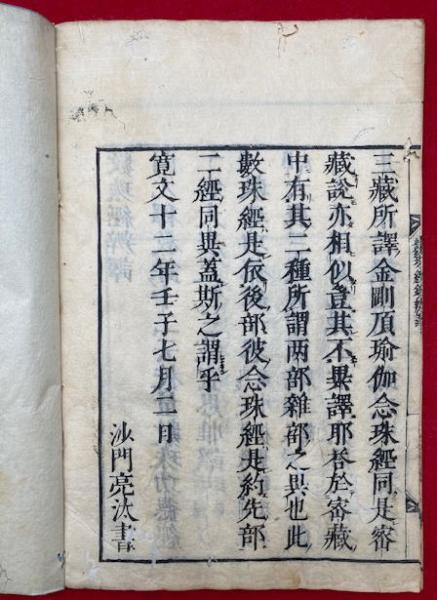 三藏所譯金剛頂瑜伽念珠經同是密
藏說亦相似豈其不異譯耶答於密藏
中有其二種所謂兩部雜部之異也此
數珠經是依後部彼念珠經是約先部
二經同異蓋斯之謂乎
寛文十二年壬子七月二日
沙門亮汰書